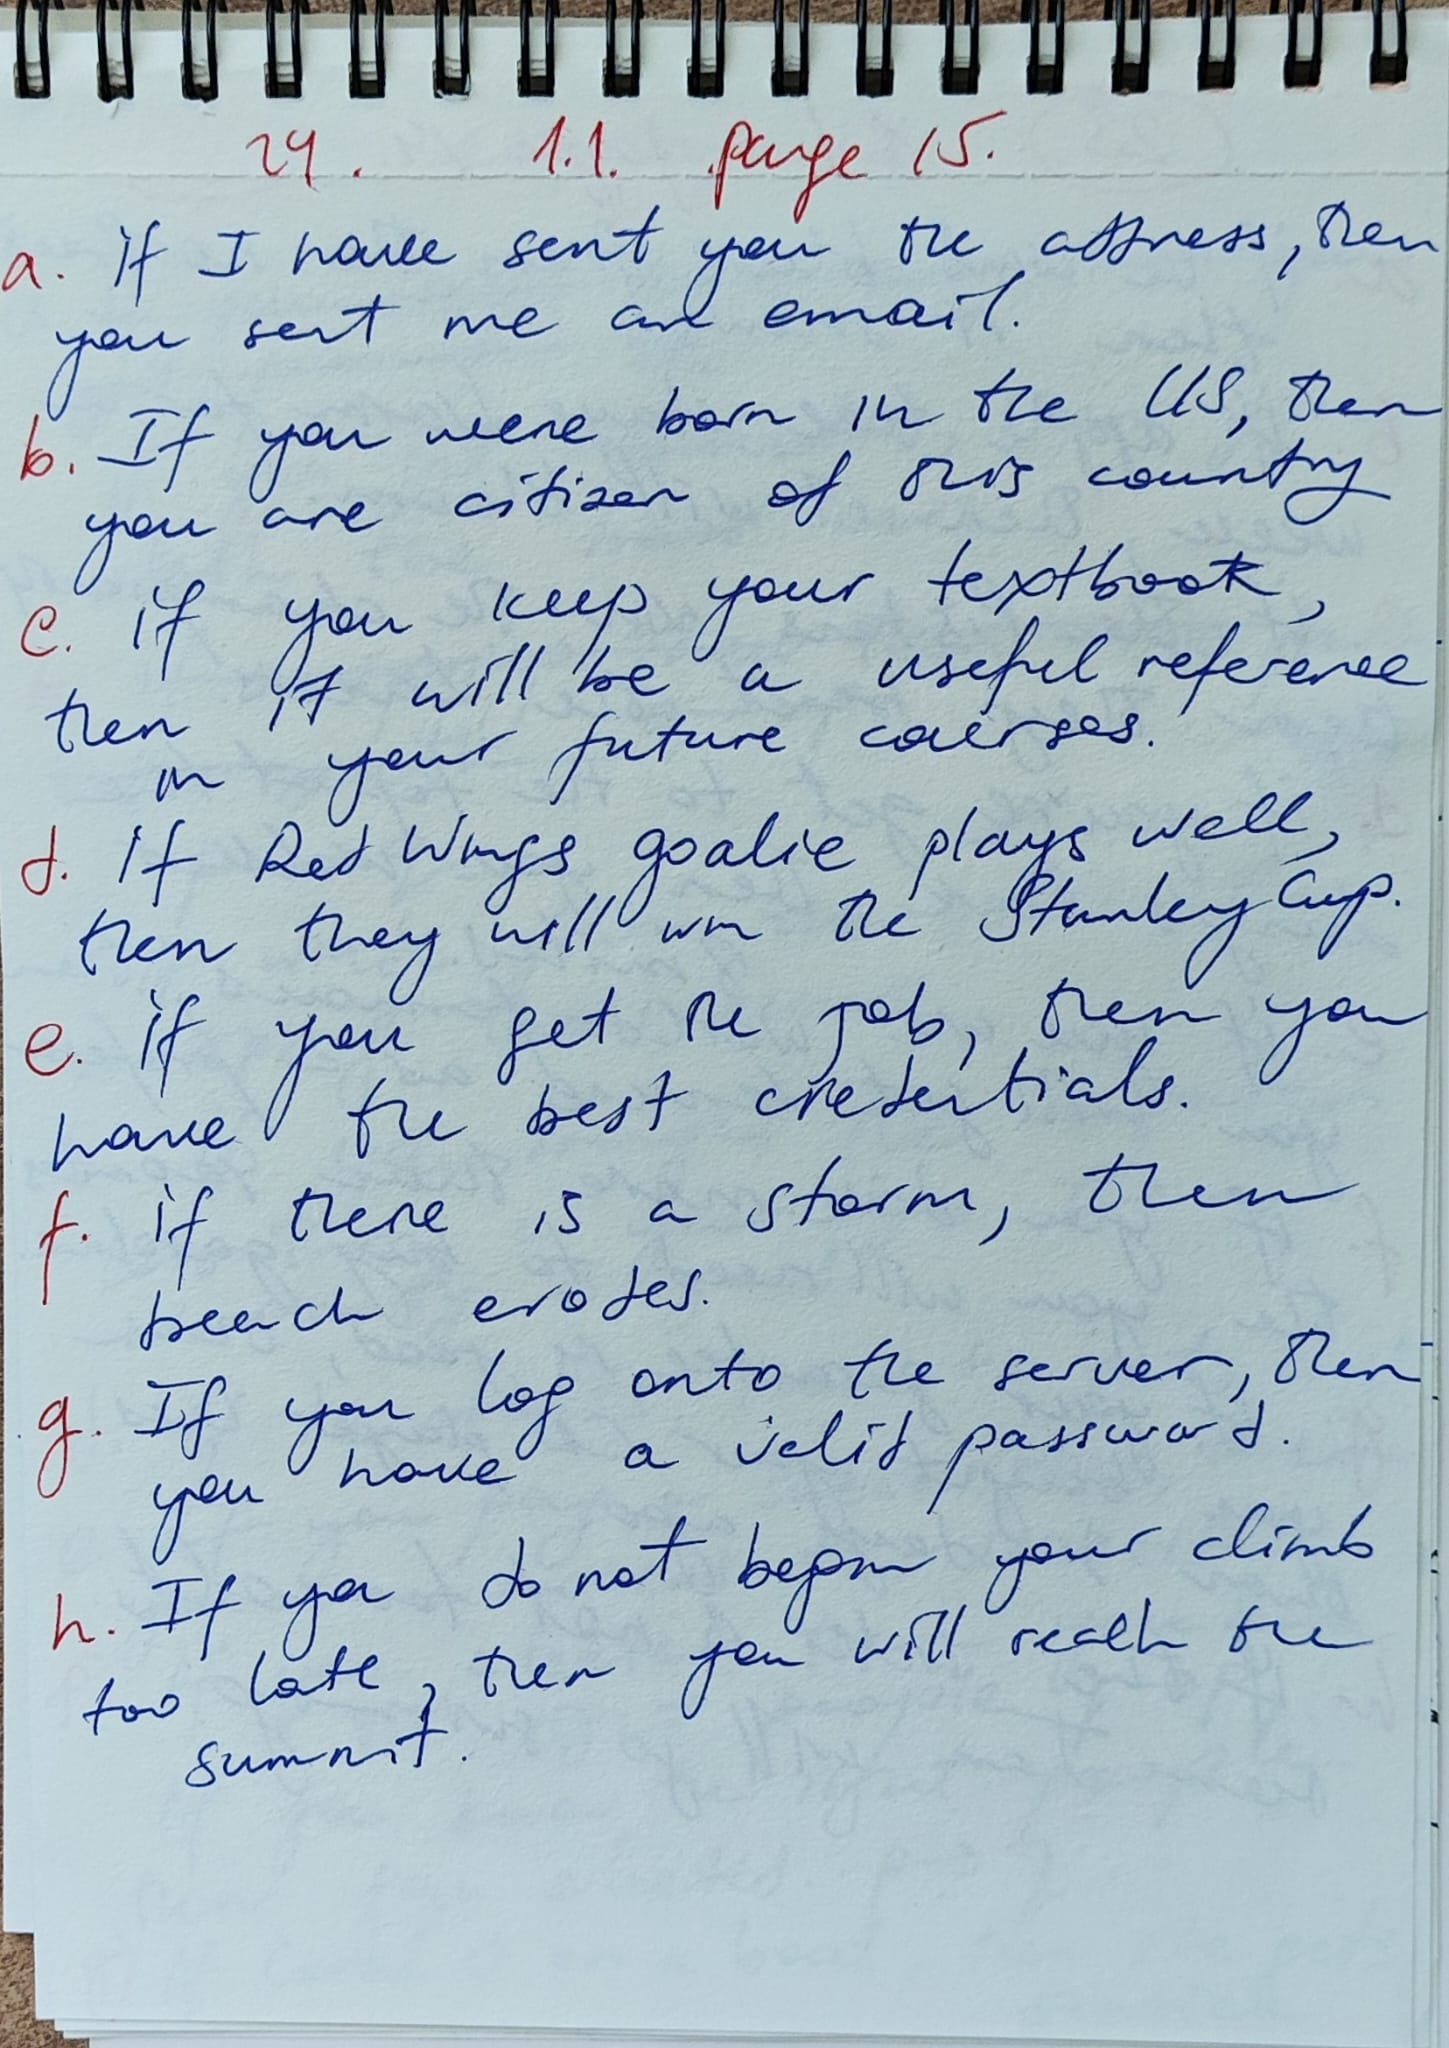 24. 1.1. page 15.
a. if I have sent you the address, then
you sent me an email.
b. If you were born in the US, then
you are citizen of this country
c. if you keep your textbook,
then it will be a useful reference
in your future courses.
d. if Red Wings goalie plays well,
then they will win the Stanley Cup.
e. if you get the job, then you
have the best credentials.
f. if there is a storm, then
beach erodes.
g. If you log onto the server, then
you have a valid password.
h. If you do not begin your climb
too late, then you will reach the
summit.